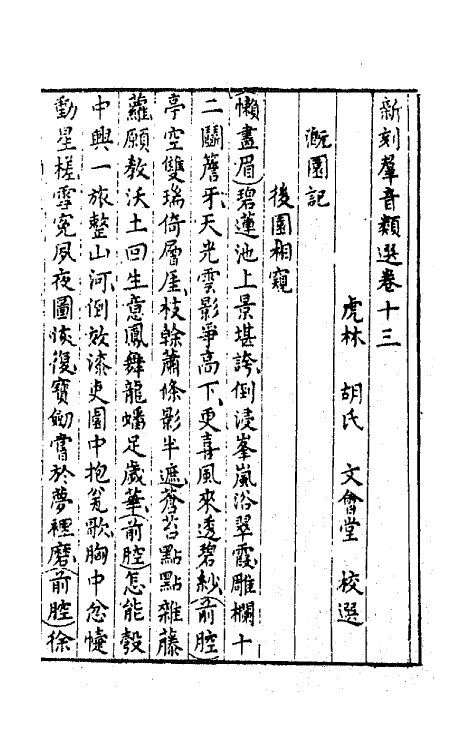 新刻羣音類選卷十三
虎林 胡氏 文會堂 校選
溉園記
後園相窺
懶畫眉碧蓮池上景堪誇倒浸峯嵐浴翠霞雕欄十
二關簷牙天光雲影爭高下更喜風來透碧紗前腔
亭空雙瑞倚層崖枝榦蕭條影半遮蒼苔點點雜藤
蘿願教沃土回生意鳳舞龍蟠足歲華前腔怎能彀
中興一旅整山河倒做漆吏園中抱瓮歌胸中忿懥
動星槎雪寃夙夜圖恢復寶劒嘗於夢裡磨前腔徐